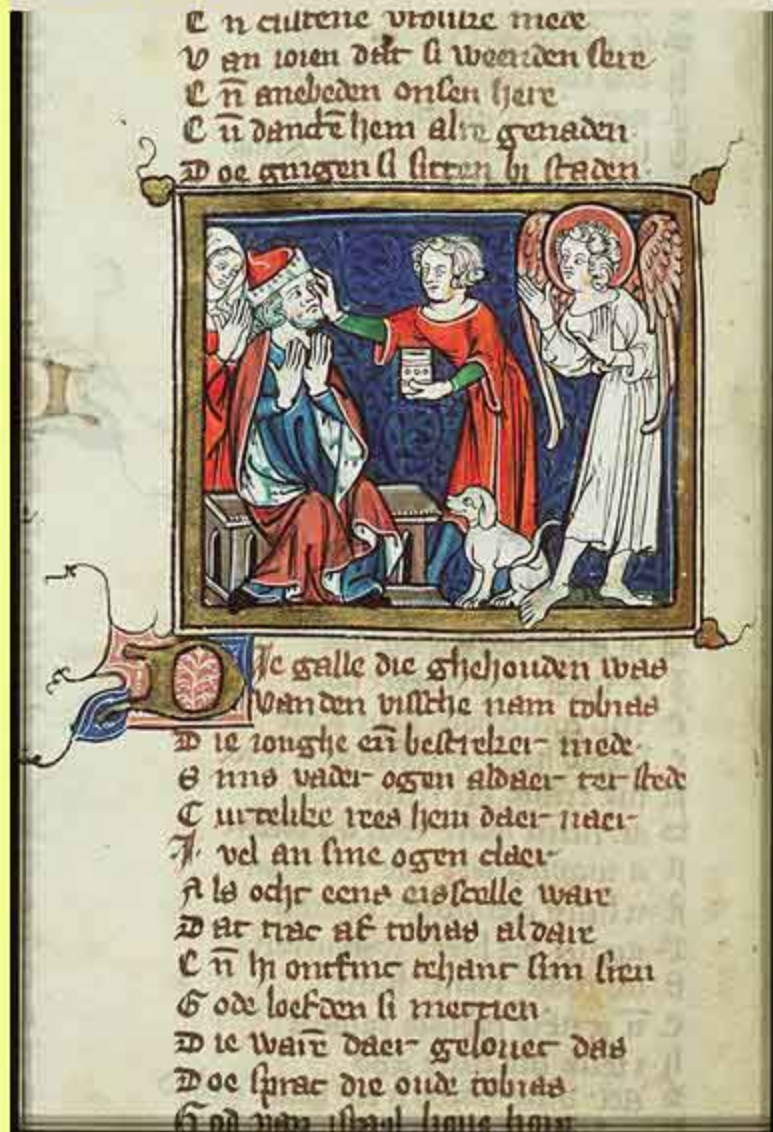 En custene vrolike mede
Van ioien dat si weenden sere
En̄ anebeden onsen here
En̄ danctē hem alre genaden
Doe gingen si sitten bi staden
Die galle die ghehouden was
Van den vissche nam tobias
Die ionghe en̄ bestreker mede
Siins vader ogen aldaer ter stede
Curtelike rees hem daer naer
I vel an sine ogen claer
Als ocht eens eis scelle ware
Dat trac af tobias aldare
En̄ hi ontfinc tehant sijn sien
Gode loefden si mettien
Die warē daer gelouet das
Doe sprac die oude tobias
God van israel